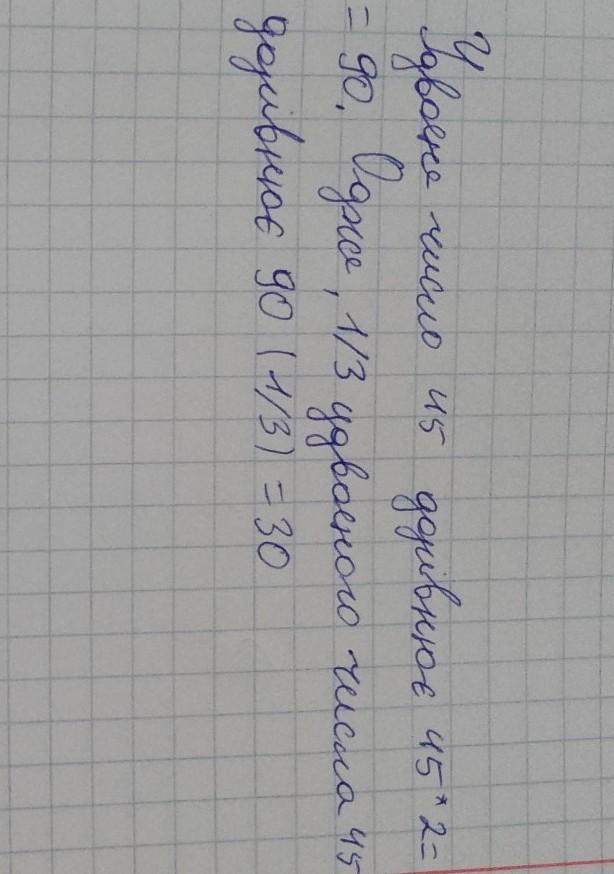 Удвоене число 45 дорівнює 45*2=
= 90, Отже, 1/3 удвоеного числа 45
дорівнює 90 (1/3) = 30